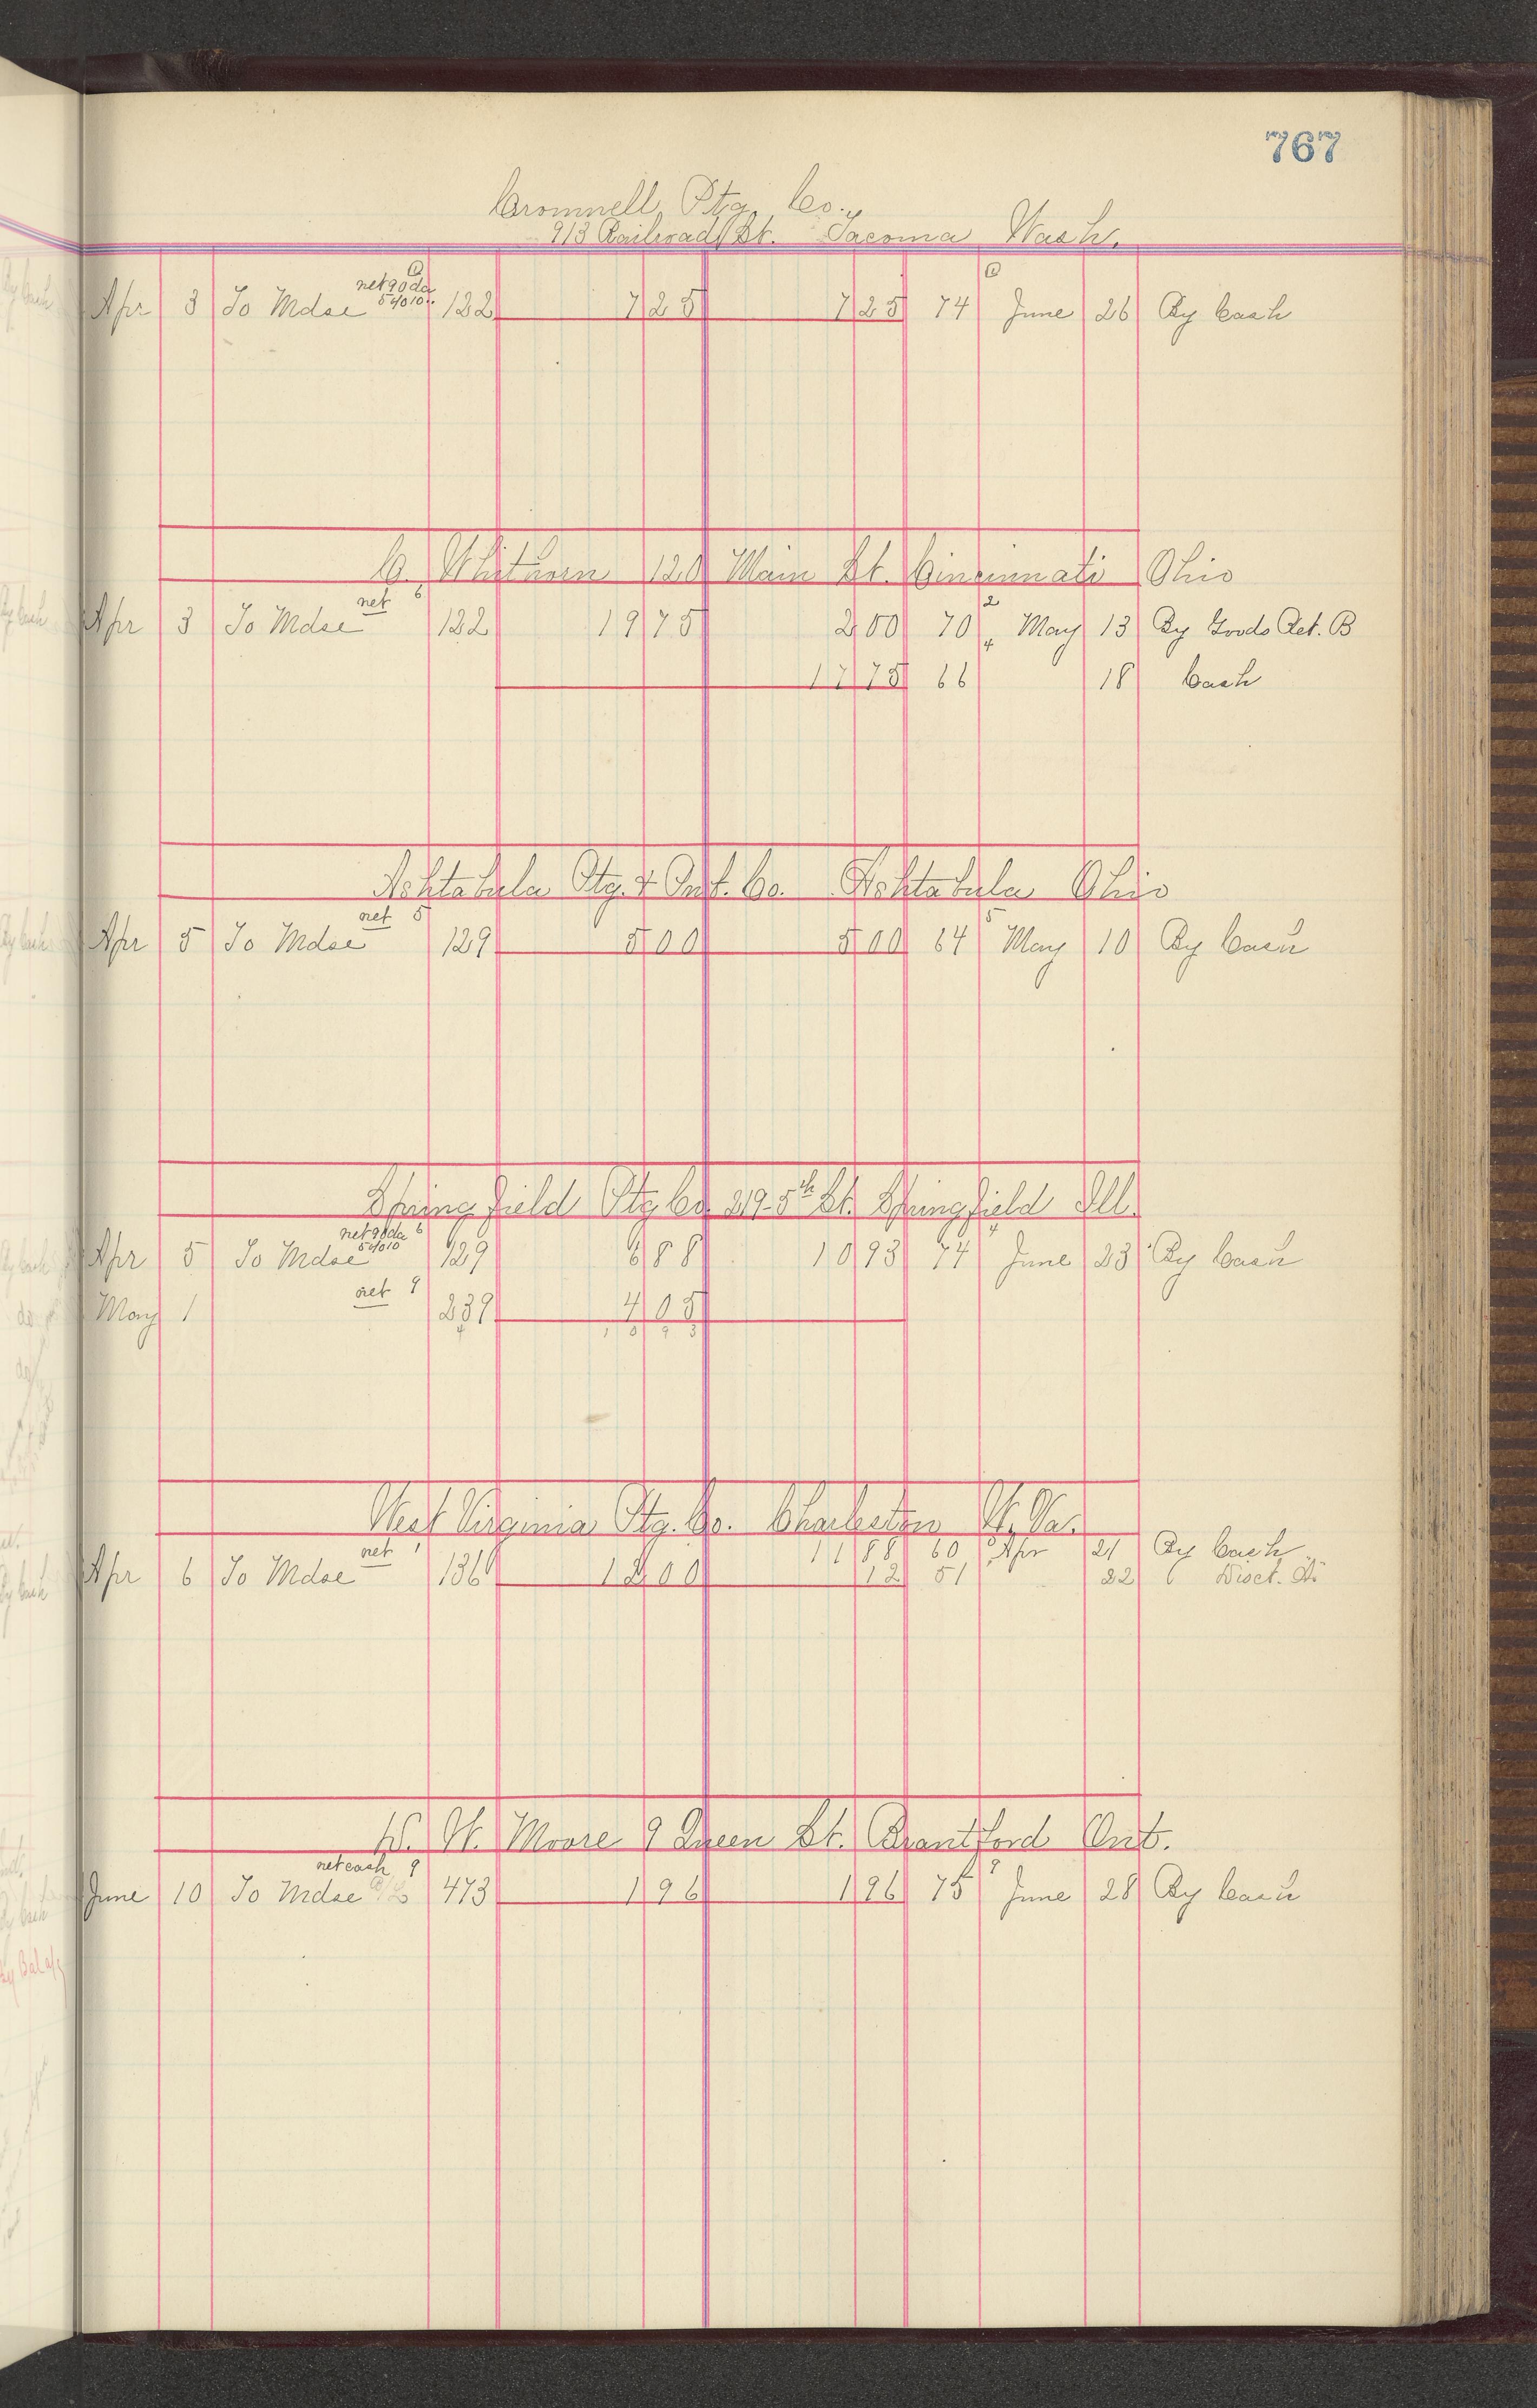 767
Cromnell Ptg. Co.,
913 Railroad St. Tacoma Wash.
Apr 3 To Mdse net 90 da 5% 10 122 7 25 7 25 74 June 26 By Cash
C. Whitnern 120 Main St. Cincinnati Ohio
net 6 2
Apr 3 To Mdse 122 19 75 2 00 70 May 13 By Goods Ret. B
17 75 66 18 Cash
Ashtabula Ptg. & Co. Ashtabula Ohio
net 5 5
Apr 5 To Mdse 129 5 00 5 00 64 May 10 By Cash
Springfield Ptg Co 219-5th St. Springfield Ill.
net 90 da 6
Apr 5 To Mdse 5% 10 129 6 88 10 93 74 June 23 By Cash
May 1 net 9 239 4 05
10 93
West Virginia Ptg. Co. Charleston W. Va.
net 1 11 88 60 Apr 21 By Cash
Apr 6 To Mdse 136 12 00 12 51 22 6 Disct.
W. Moore 9 Queen St. Brantford Ont.
net cash 9 9
June 10 To Mdse 473 1 96 1 96 75 June 28 By Cash